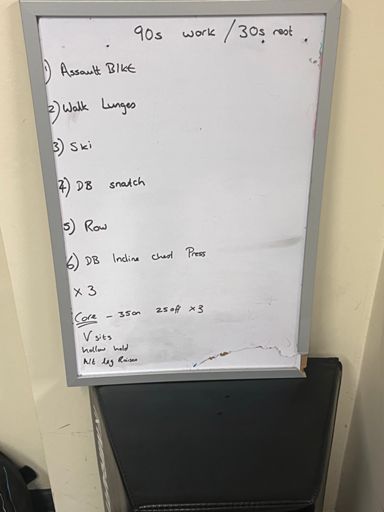 90s work / 30s rest
1) Assault BIKE
2) Walk Lunges
3) Ski
4) DB snatch
5) Row
6) DB Incline chest Press
x 3
Core - 35on 25off x3
V sits
hollow hold
Alt leg Raises